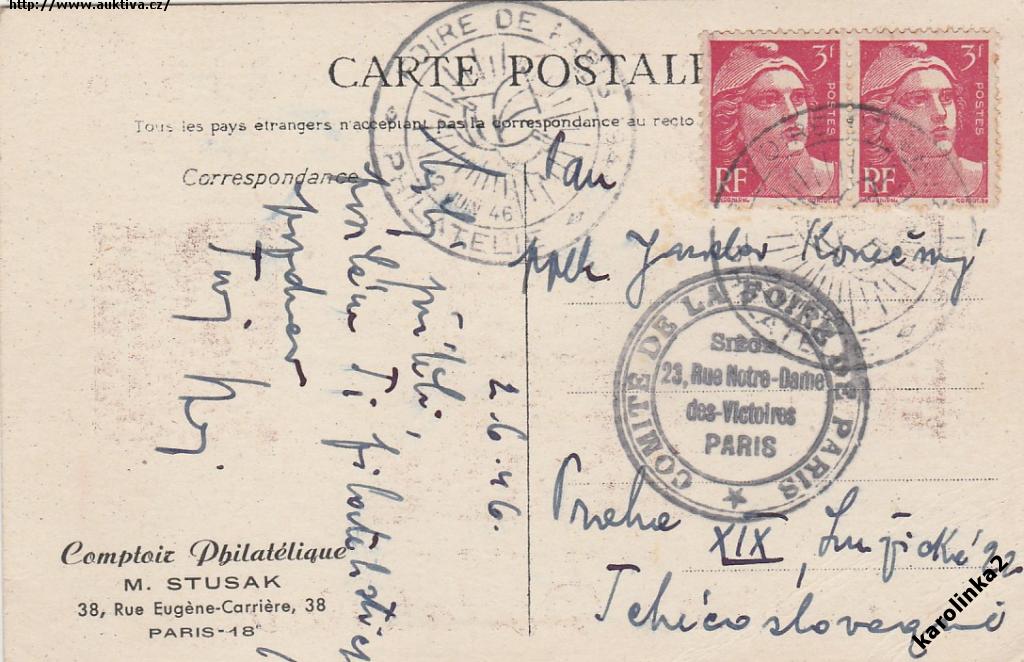 http://www.auktiva.cz/
CARTE POSTALE
Tous les pays étrangers n'acceptent pas la correspondance au recto
Correspondance
FOIRE DE PARIS
2 JUIN 46
PHILATELIE
3F
POSTES
RF
3F
POSTES
RF
2.6.46.
příteli,
posílám Ti filatelistický
Tvůj
Pan
pplk Jaroslav Konečný
Praha
XIX, Lužická 92
Tchécoslovaquie
COMITÉ DE LA FOIRE DE PARIS
23, Rue Notre-Dame
des-Victoires
PARIS
Comptoir Philatélique
M. STUSAK
38, Rue Eugène-Carrière, 38
PARIS-18e
karolinka2